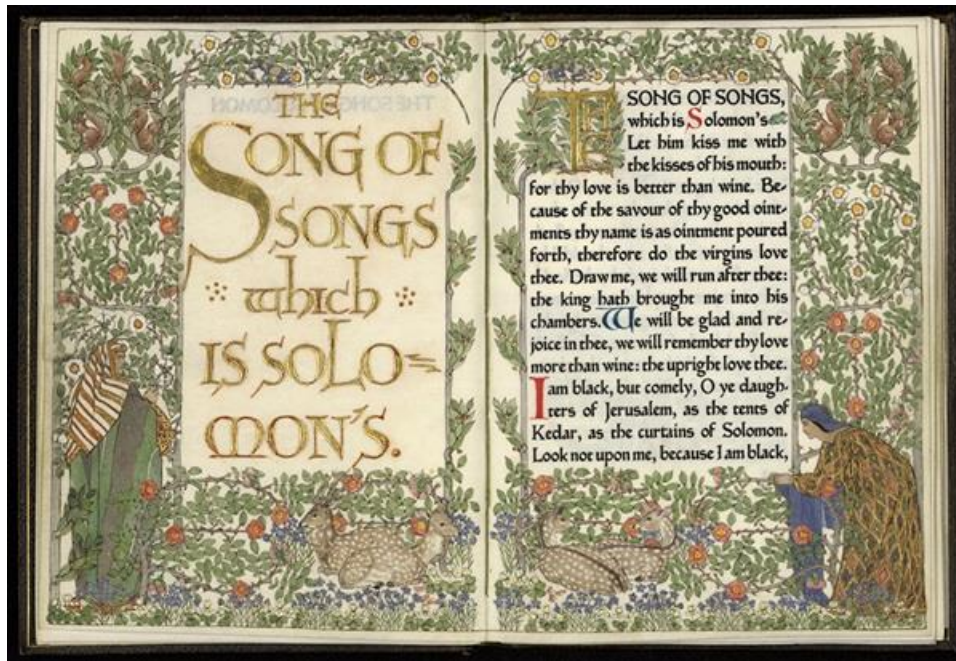 THE SONG OF SOLOMON
THE
SONG OF
SONGS
which
IS SOLO=
MON'S.
THE SONG OF SONGS,
which is Solomon's
Let him kiss me with
the kisses of his mouth:
for thy love is better than wine. Be-
cause of the savour of thy good oint-
ments thy name is as ointment poured
forth, therefore do the virgins love
thee. Draw me, we will run after thee:
the king hath brought me into his
chambers. We will be glad and re-
joice in thee, we will remember thy love
more than wine: the upright love thee.
I am black, but comely, O ye daugh-
ters of Jerusalem, as the tents of
Kedar, as the curtains of Solomon.
Look not upon me, because I am black,